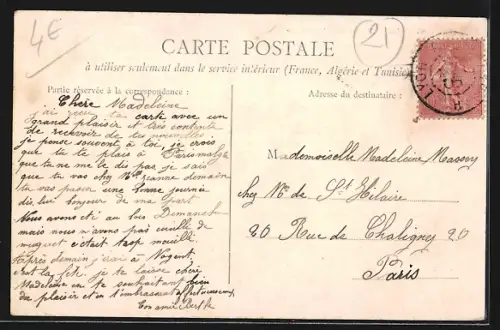 4€
21
CARTE POSTALE
à utiliser seulement dans le service intérieur (France, Algérie et Tunisie)
Partie réservée à la correspondance :
Adresse du destinataire :
Chère Madeleine
j'ai reçu ta carte avec un
grand plaisir et très contente
de recevoir de tes nouvelles. je
pense souvent à toi, je crois
que tu te plais à Paris malgré
que tu ne me le dis pas je sais
que tu vas chez Mme Jeanne demain
tu vas passer une bonne journée
dis lui bonjour de ma part
Nous avons été au bois Dimanche
mais nous n'avons pas cueilli de
muguet c'était trop mouillé
Après demain j'irai à Nogent,
c'est la fête. je te laisse chère
Madeleine en te souhaitant bien
du plaisir et en t'embrassant affectueusement
Ton amie Berthe
Mademoiselle Madeleine
chez Me de St Hilaire
20 Rue de Chaligney 20
Paris